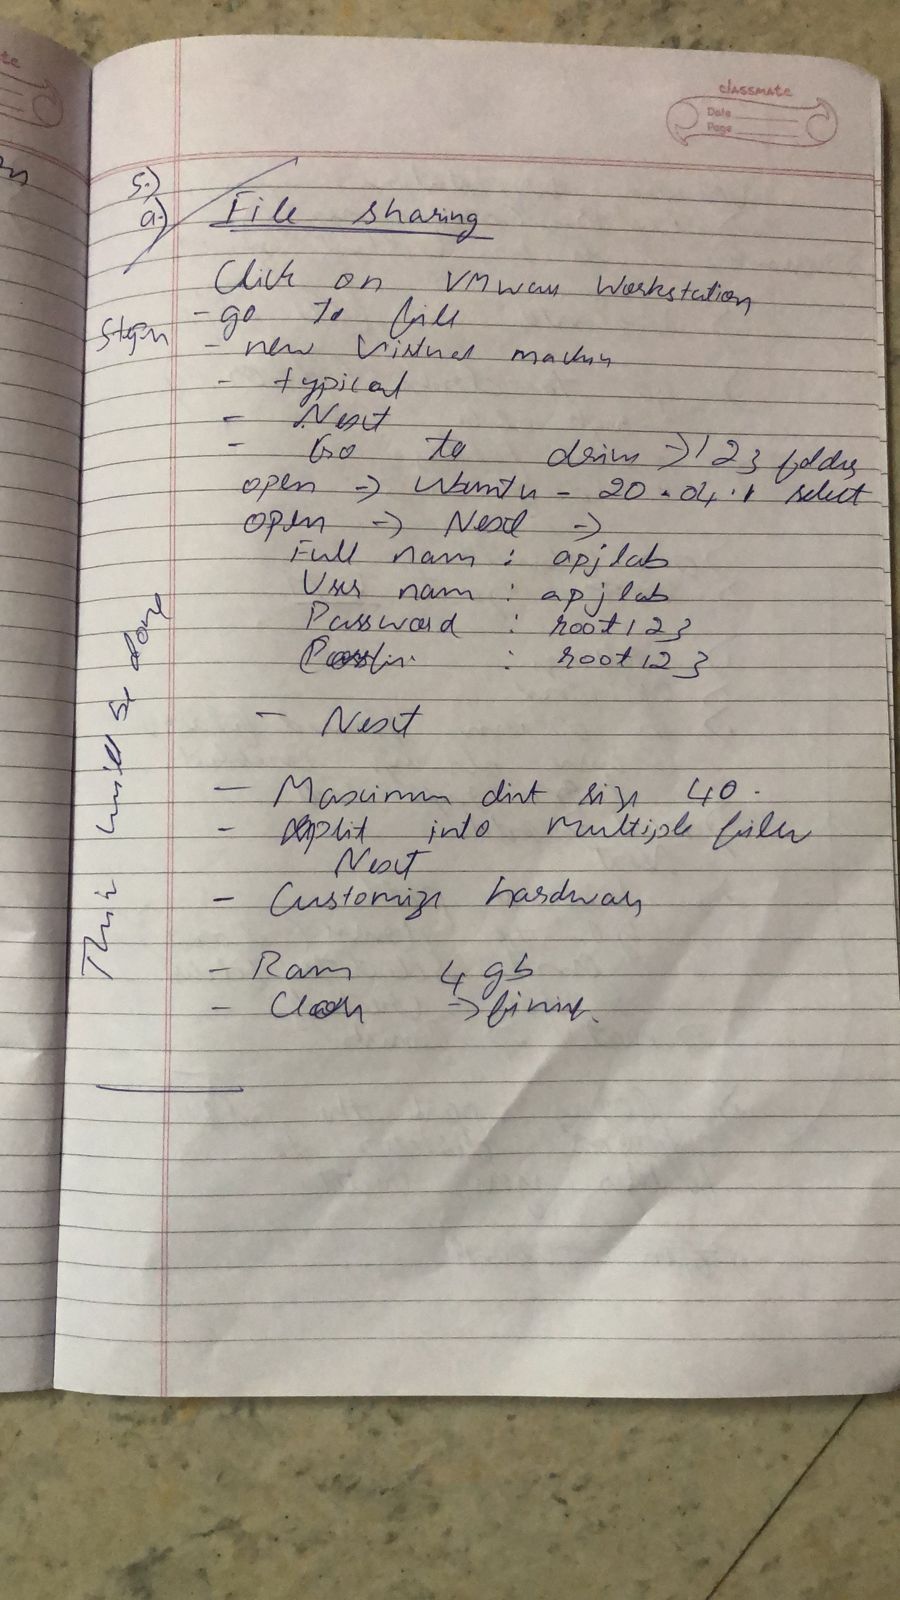 classmate
Date
Page
5.)
a.) File sharing
Click on VMware Workstation
Steps - go to file
- new virtual machin
- typical
- Next
- Go to drive → 123 folder
open → Ubuntu - 20.04.1 select
open → Next →
Full nam : apjlab
User nam : apjlab
Password : root123
: root123
- Next
- Maximum disk size 40.
- split into multiple files
Next
- Customize hardware
- Ram 4 gb
- Close → finish.
This will be done